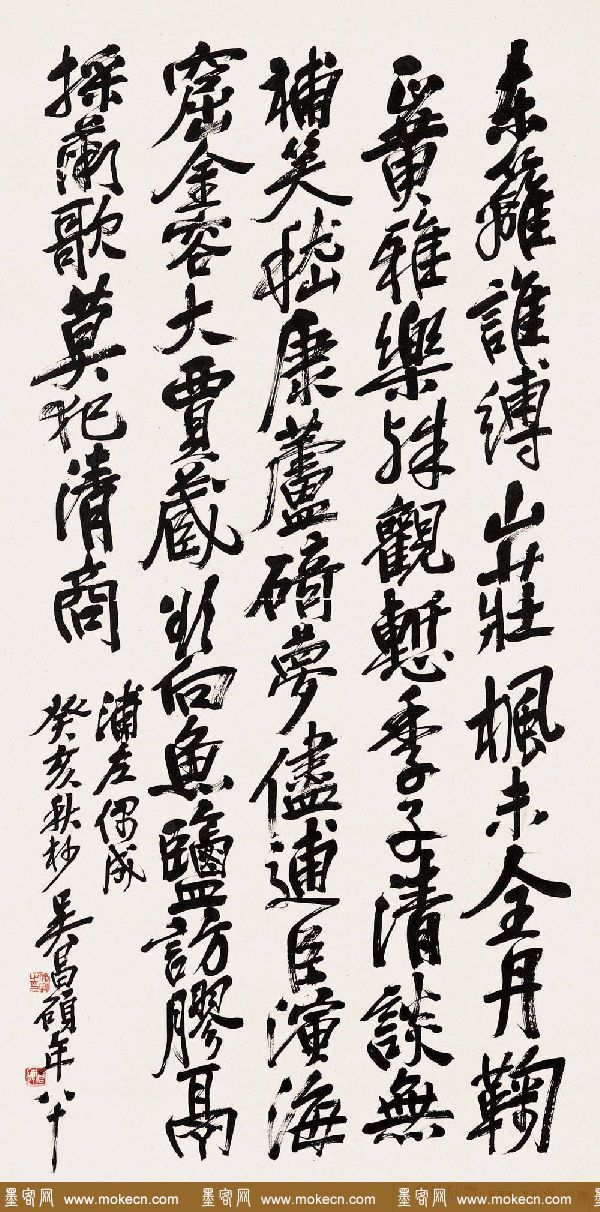 东籬誰縛山莊楓未全丹鞠
正黄雅樂殊觀慙季子清談無
補笑嵇康蘆碕夢儘逋臣演海
窟金容大賈藏向魚鹽訪膠鬲
採歌莫犯清商
浦左偶成
癸亥秋杪吴昌碩年八十
墨客网 www.mokecn.com 墨客网 www.mokecn.com 墨客网 www.mokecn.com